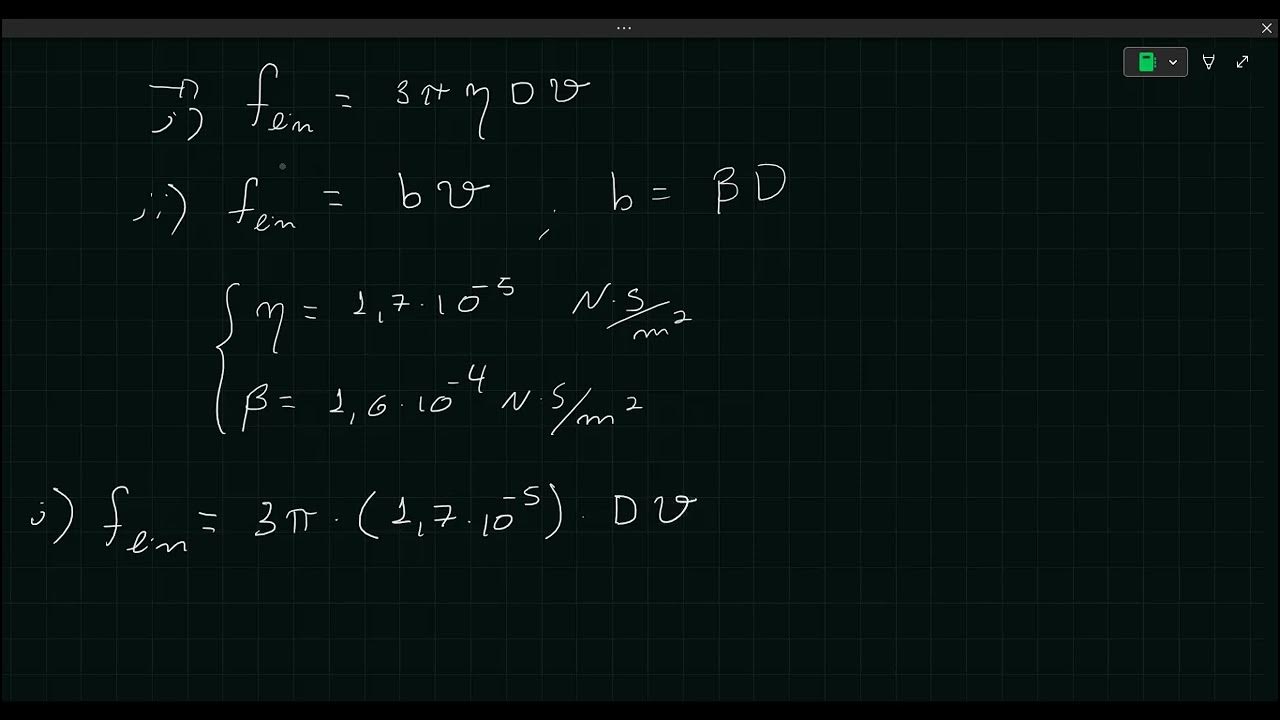 → i) f_lin = 3π η D v
ii) f_lin = b v ; b = β D
η = 1,7 · 10^-5 N·s/m^2
β = 1,6 · 10^-4 N·s/m^2
i) f_lin = 3π · (1,7 · 10^-5) · D v